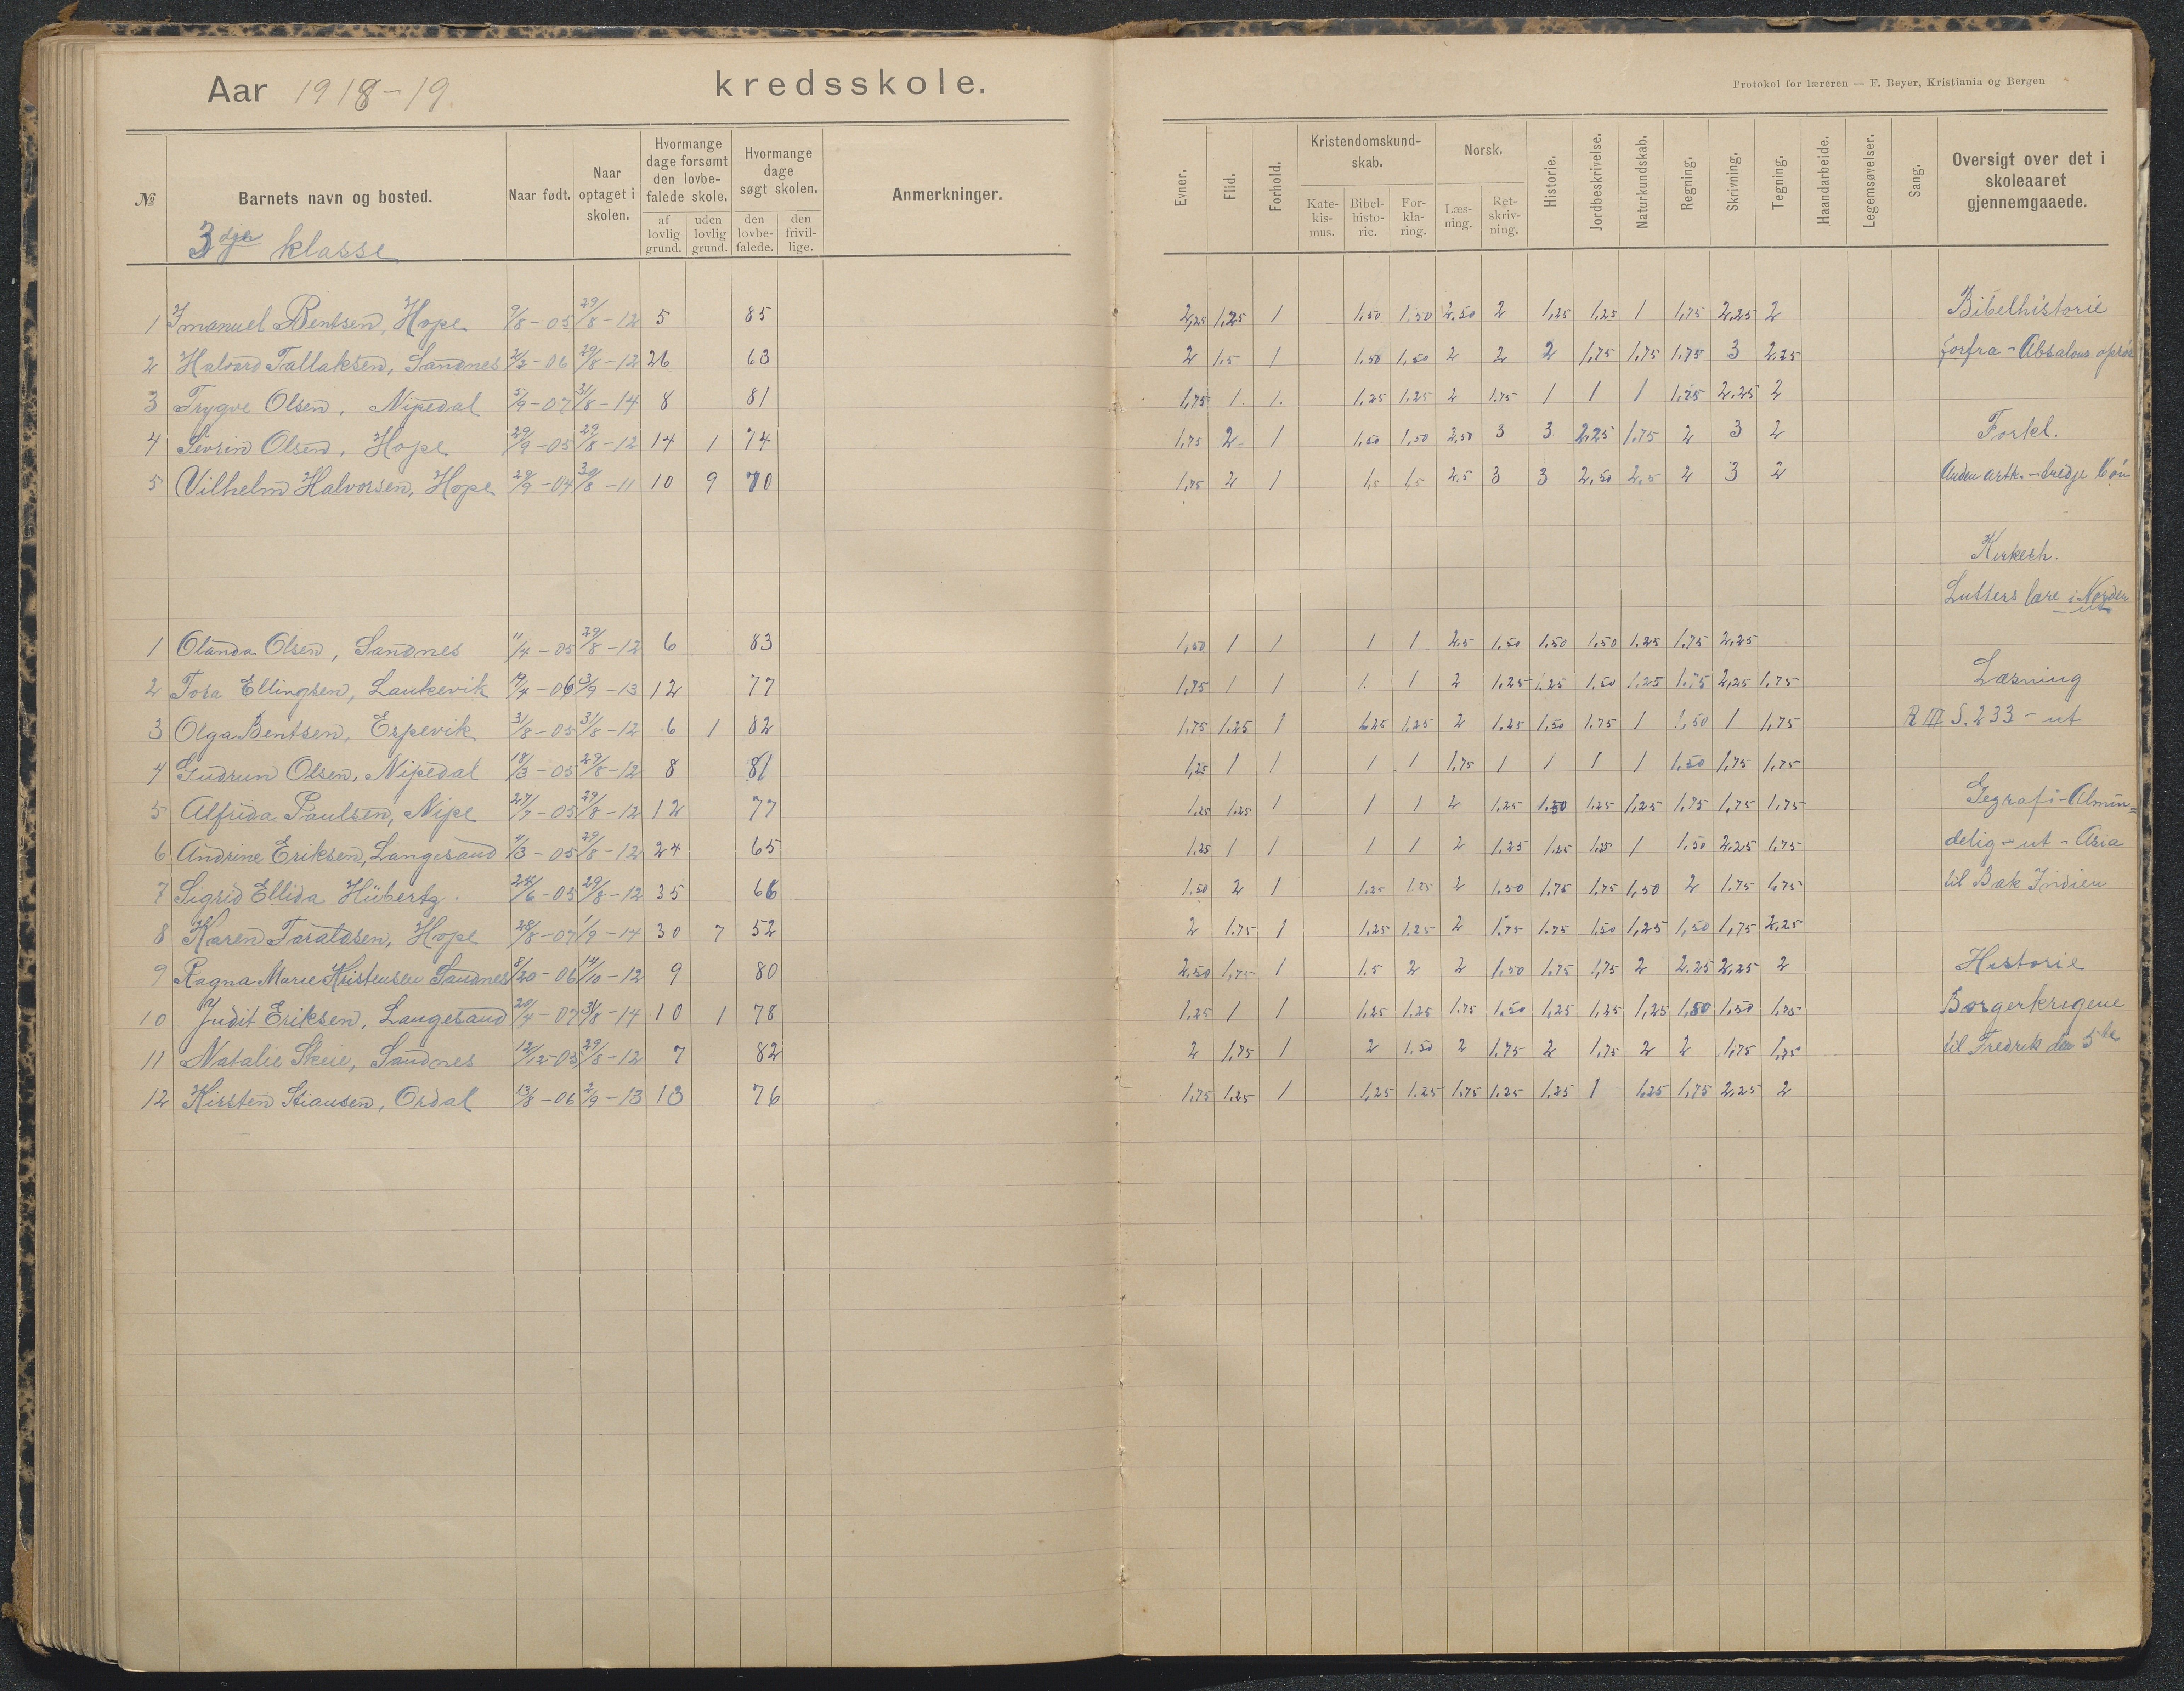 Aar 1918-19. kredsskole.
Protokol for læreren — F. Beyer, Kristiania og Bergen
№ Barnets navn og bosted. Naar født. Naar optaget i skolen. Hvormange dage forsømt den lovbefalede skole. af lovlig grund. uden lovlig grund. Hvormange dage søgt skolen. den lovbefalede. den frivillige. Anmerkninger.
Evner. Flid. Forhold. Kristendomskundskab. Katekismus. Bibelhistorie. Forklaring. Norsk. Læsning. Retskrivning. Historie. Jordbeskrivelse. Naturkundskab. Regning. Skrivning. Tegning. Haandarbeide. Legemsøvelser. Sang. Oversigt over det i skoleaaret gjennemgaaede.
3dje klasse
1 Imanuel Bentsen, Hope 9/8-05 29/8-12 5 85 2,25 1,25 1 1,50 1,50 2,50 2 1,25 1,25 1 1,75 2,25 2 Bibelhistorie
2 Halvard Tallaksen, Sandnes 2/2-06 29/8-12 26 63 2 1,5 1 1,50 1,50 2 2 2 1,75 1,75 1,75 3 2,25 forfra - Absalons oprør
3 Trygve Olsen, Nipedal 5/9-07 31/8-14 8 81 1,75 1 1 1,25 1,25 2 1,75 1 1 1 1,75 2,25 2
4 Sevrin Olsen, Hope 29/9-05 29/8-12 14 1 74 1,75 2 1 1,50 1,50 2,50 3 3 2,25 1,75 2 3 2 Forkl.
5 Vilhelm Halvorsen, Hope 29/9-04 30/8-11 10 9 70 1,75 2 1 1,5 1,5 2,5 3 3 2,50 2,5 2 3 2 Anden artk. - tredje bøn
Kirkeh.
Lutters lære i Norden ut
1 Olanda Olsen, Sandnes 11/4-05 29/8-12 6 83 1,50 1 1 1 1 2,5 1,50 1,50 1,50 1,25 1,75 2,25
2 Tora Ellingsen, Laukevik 19/4-06 3/9-13 12 77 1,75 1 1 1 1 2 1,25 1,25 1,50 1,25 1,75 2,25 1,75 Læsning
3 Olga Bentsen, Espevik 31/8-05 31/8-12 6 1 82 1,75 1,25 1 1,25 1,25 2 1,25 1,50 1,75 1 1,50 1 1,75 R III S. 233 - ut
4 Gudrun Olsen, Nipedal 18/3-05 29/8-12 8 81 1,25 1 1 1 1 1,75 1 1 1 1 1,50 1,75 1,75
5 Alfrida Paulsen, Nipe 27/7-05 29/8-12 12 77 1,25 1,25 1 1 1 2 1,25 1,50 1,25 1,25 1,75 1,75 1,75 Gegrafi - Almin=
6 Andrine Eriksen, Langesand 11/3-05 29/8-12 24 65 1,25 1 1 1 1 2 1,25 1,25 1,25 1 1,50 2,25 1,75 delig - ut - Asia
7 Sigrid Ellida Hübertz. 24/6-05 29/8-12 35 66 1,50 2 1 1,25 1,25 2 1,50 1,75 1,75 1,50 2 1,75 1,75 til Bak Indien
8 Karen Taraldsen, Hope 28/8-07 1/9-14 30 7 52 2 1,75 1 1,25 1,25 2 1,75 1,75 1,50 1,25 1,50 1,75 2,25
9 Ragna Marie Kristensen Sandnes 8/20-06 14/10-12 9 80 2,50 1,75 1 1,5 2 2 1,50 1,75 1,75 2 2,25 2,25 2 Historie
10 Judit Eriksen, Langesand 20/4-07 31/8-14 10 1 78 1,25 1 1 1,25 1,25 1,75 1,50 1,25 1,25 1,25 1,50 1,50 1,75 Borgerkrigene
11 Natalie Skeie, Sandnes 12/12-05 29/8-12 7 82 2 1,75 1 2 1,50 2 1,75 2 1,75 2 2 1,75 1,75 til Fredrik den 5te
12 Kirsten Stiansen, Ordal 13/8-06 2/9-13 13 76 1,75 1,25 1 1,25 1,25 1,75 1,25 1,25 1 1,25 1,75 2,25 2